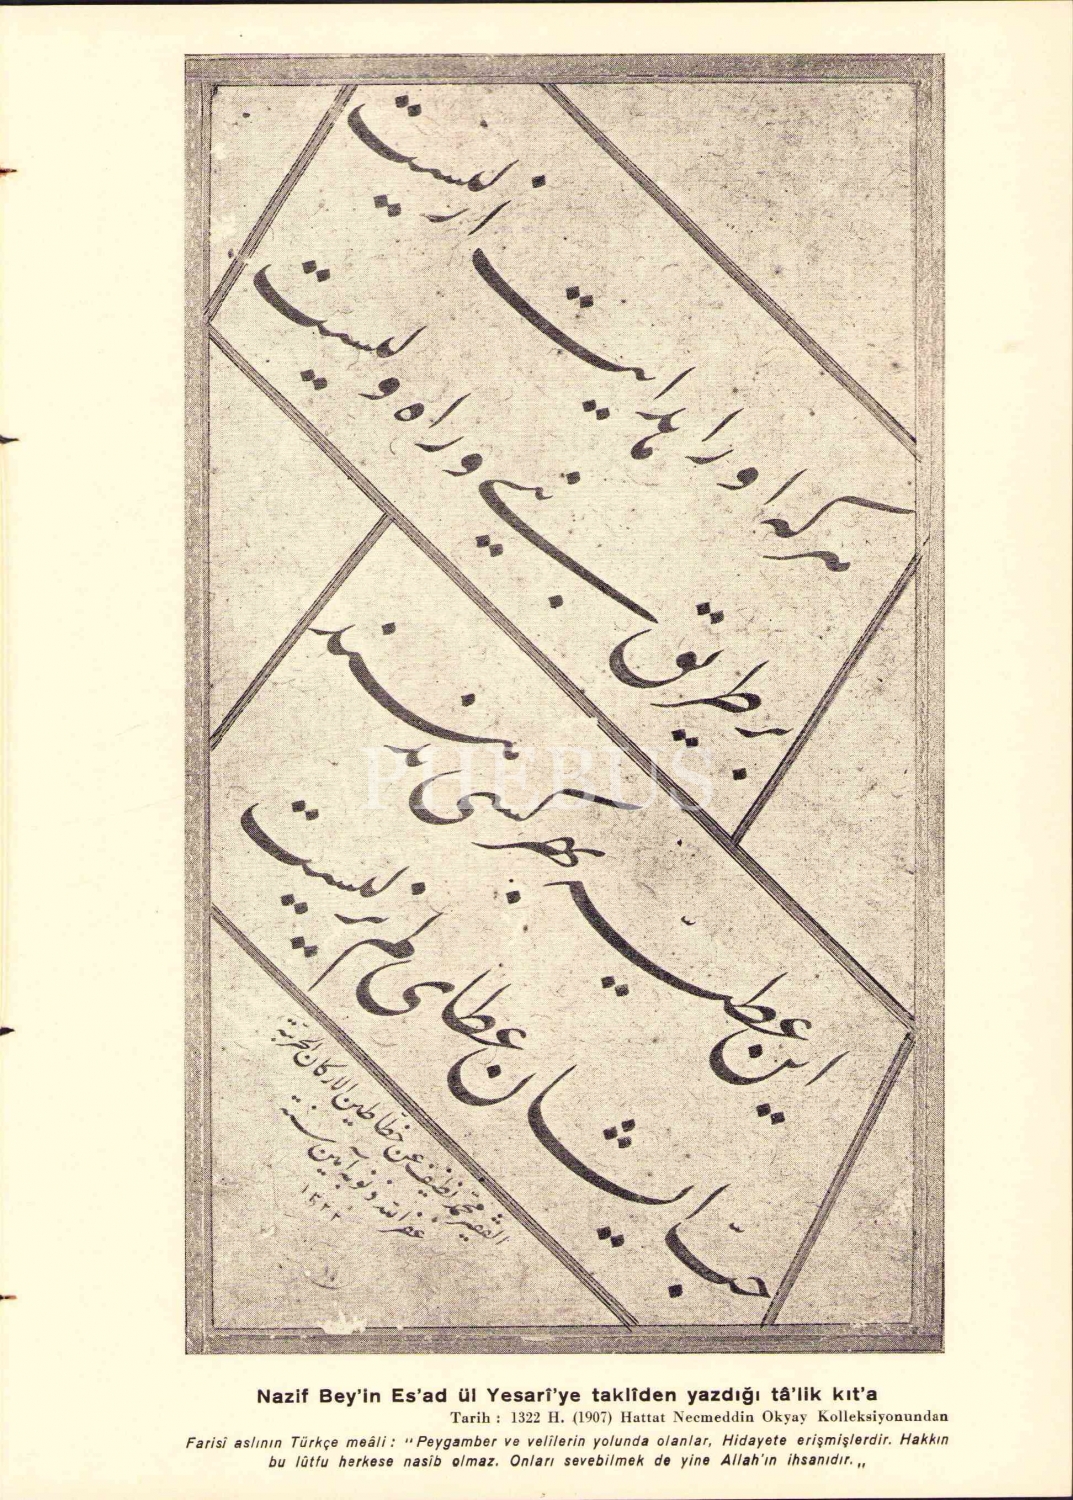 هر کرا او را هدایت ازلیست
بر طریق نبی و راه ولیست
PHEBUS
این عطیت بهر کسی ندهند
حبّ ایشان عطای لم یزلیست
الفقیر محمد نظیف عن خطاطین الارکان الحربیة
غفر الله ذنوبه آمین سنه
١٣٢٢
Nazif Bey'in Es'ad ül Yesarî'ye taklîden yazdığı tâ'lik kıt'a
Tarih : 1322 H. (1907) Hattat Necmeddin Okyay Kolleksiyonundan
Farisî aslının Türkçe meâli : "Peygamber ve velîlerin yolunda olanlar, Hidayete erişmişlerdir. Hakkın
bu lûtfu herkese nasîb olmaz. Onları sevebilmek de yine Allah'ın ihsanıdır.„